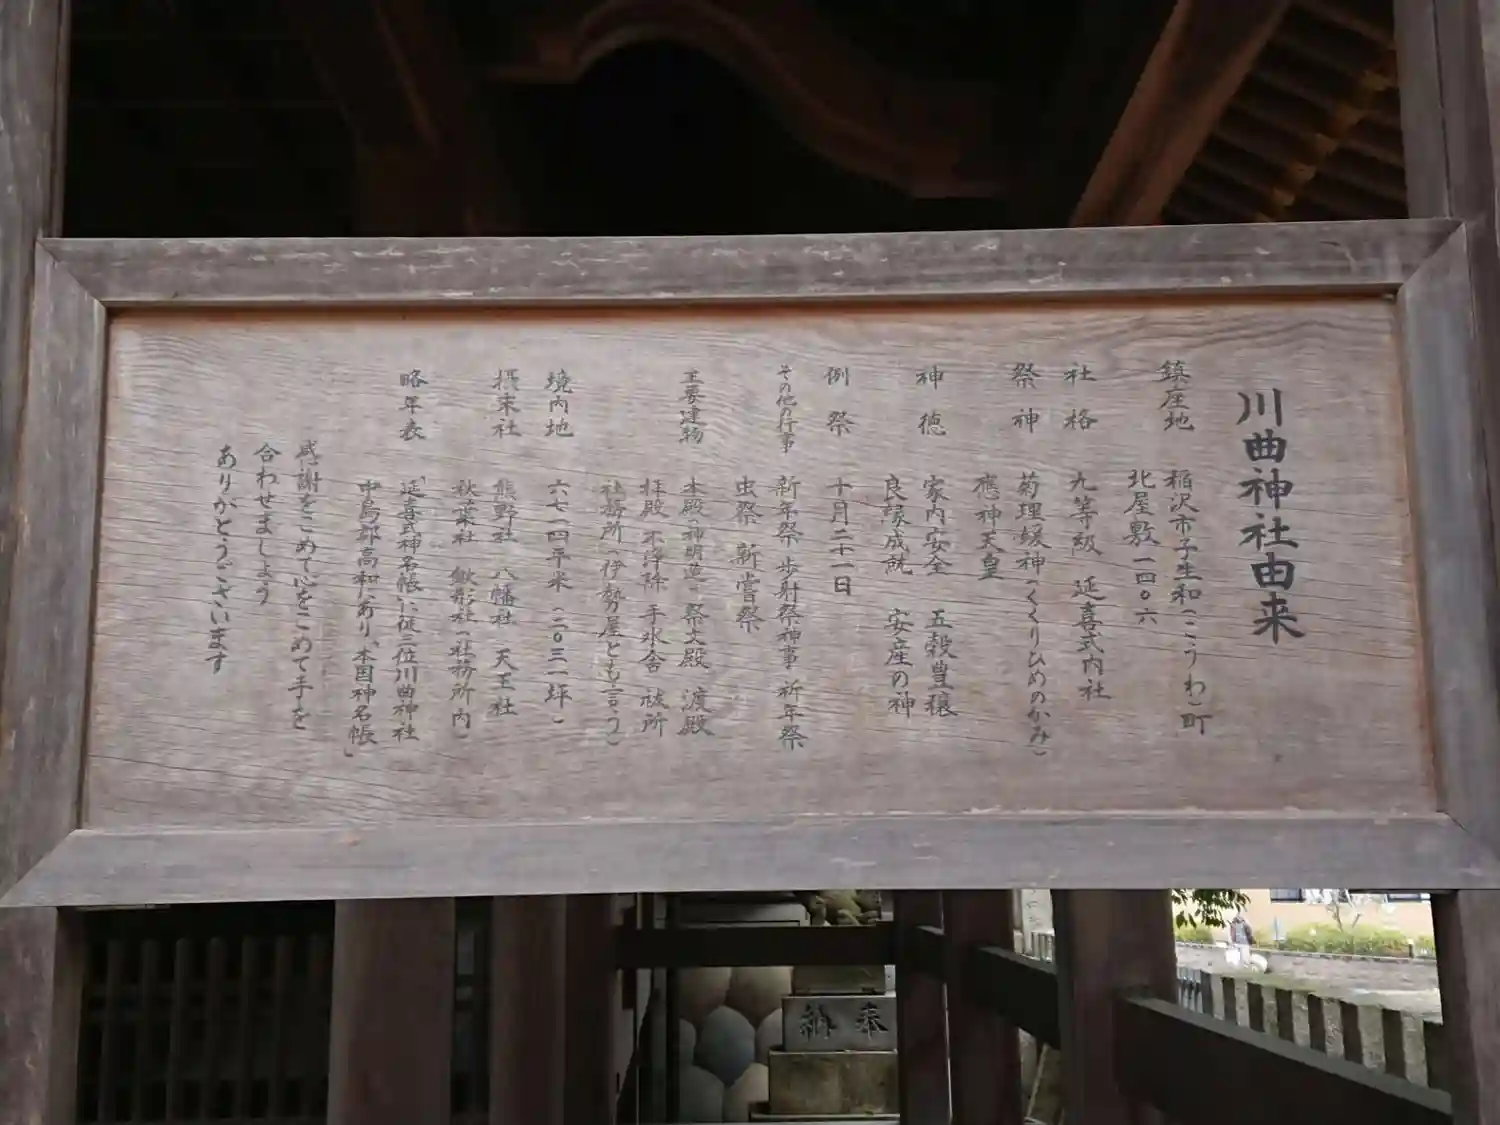 川曲神社由来
鎮座地 稲沢市子生和(こうわ)町
北屋敷一四〇六
社格 九等級 延喜式内社
祭神 菊理媛神(くくりひめのかみ)
應神天皇
神徳 家内安全 五穀豊穣
良縁成就 安産の神
例祭 十月二十一日
その他の行事 新年祭 歩射祭神事 祈年祭
虫祭 新嘗祭
主要建物 本殿(神明造) 祭文殿 渡殿
拝殿 不浄除 手水舎 祓所
社務所(伊勢屋とも言う)
境内地 六七一四平米(二〇三一坪)
摂末社 熊野社 八幡社 天王社
秋葉社 鍬形社(社務所内)
略年表 「延喜式神名帳」に従三位川曲神社
中島郡高和にあり、「本国神名帳」
感謝をこめて心をこめて手を
合わせましょう
ありがとうございます
奉納